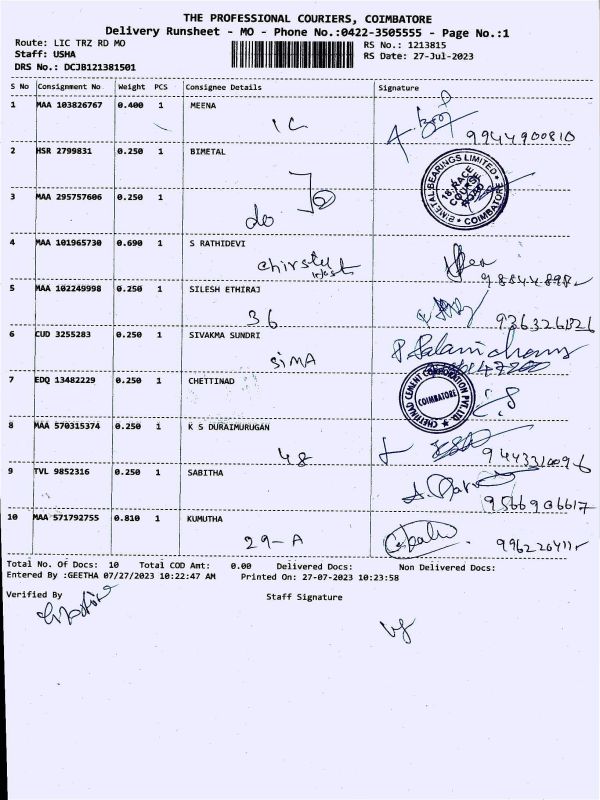 THE PROFESSIONAL COURIERS, COIMBATORE
Delivery Runsheet - MO - Phone No.:0422-3505555 - Page No.:1
Route: LIC TRZ RD MO
RS No.: 1213815
Staff: USHA
RS Date: 27-Jul-2023
DRS No.: DCJB121381501
S No Consignment No Weight PCS Consignee Details Signature
1 MAA 103826767 0.400 1 MEENA
1C
9944900810
2 HSR 2799831 0.250 1 BIMETAL
BIMETAL BEARINGS LIMITED
18, RACE COURSE ROAD
COIMBATORE
3 MAA 295757606 0.250 1
do
4 MAA 101965730 0.690 1 S RATHIDEVI
5 MAA 102249998 0.250 1 SILESH ETHIRAJ
36
6 CUD 3255283 0.250 1 SIVAKMA SUNDRI
SiMA
7 EDQ 13482229 0.250 1 CHETTINAD
CHETTINAD CEMENT CORPORATION PVT. LTD.
COIMBATORE
8 MAA 570315374 0.250 1 K S DURAIMURUGAN
48
9443310096
9 TVL 9852316 0.250 1 SABITHA
9566906617
10 MAA 571792755 0.810 1 KUMUTHA
29-A
Total No. Of Docs: 10 Total COD Amt: 0.00 Delivered Docs: Non Delivered Docs:
Entered By :GEETHA 07/27/2023 10:22:47 AM Printed On: 27-07-2023 10:23:58
Verified By Staff Signature